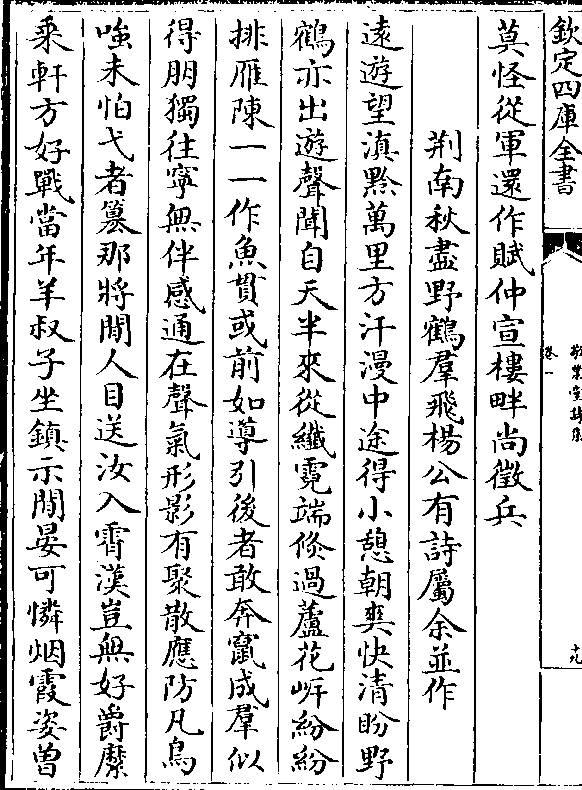 欽定四庫全書
敬業堂詩集
卷一
十九
莫怪從軍還作賦仲宣樓畔尚徵兵
荆南秋盡野鶴羣飛楊公有詩屬余並作
遠遊望滇黔萬里方汗漫中途得小憩朝爽快清盼野
鶴亦出遊聲聞自天半來從纖霓端倐過蘆花岍紛紛
排雁陳一一作魚貫或前如導引後者敢奔竄成羣似
得朋獨往寜無伴感通在聲氣形影有聚散應防凡鳥
嗤未怕弋者篡那將閒人目送汝入霄漢豈無好爵縻
乘軒方好戰當年羊叔子坐鎮示閒晏可憐烟霞姿曽